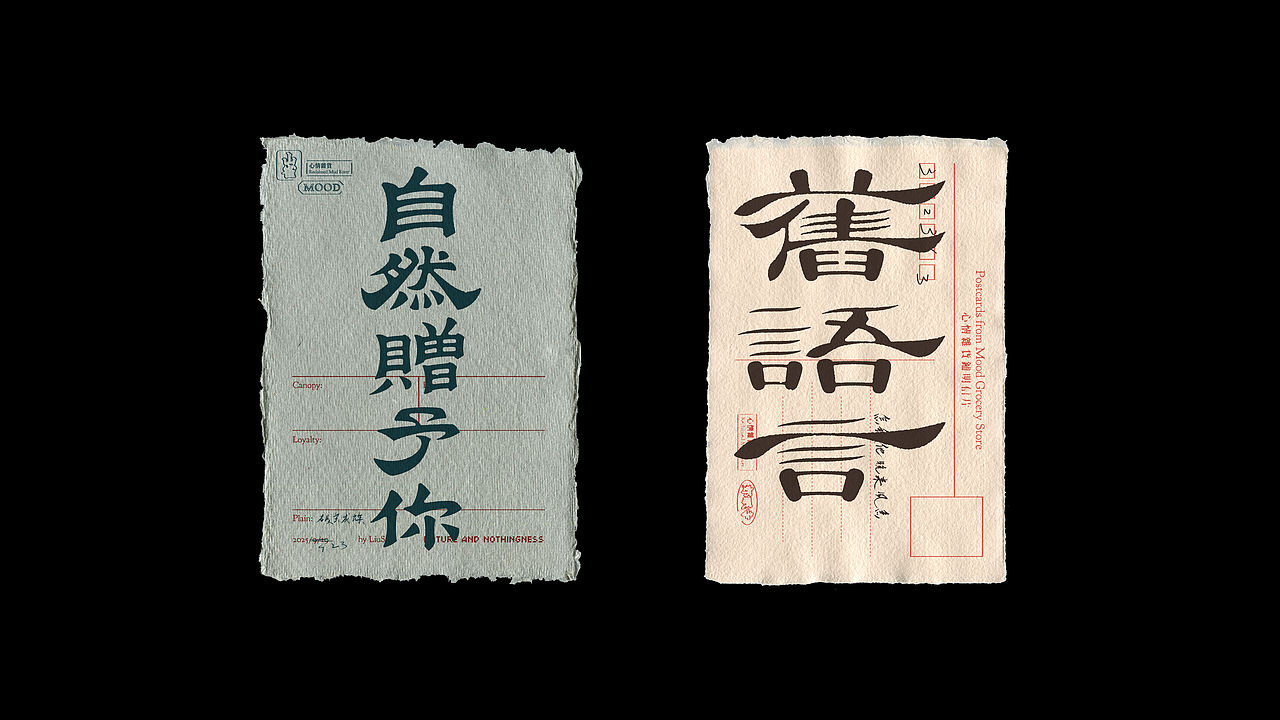 心情雜貨
Reclaimed Mud River
MOOD
自然贈予你
Canopy:
Loyalty:
Plain:
2025/9/19
9 23
by LiuS
TURE AND NOTHINGNESS
舊語言
3 2 5 3
Postcards from Mood Grocery Store
心情雜貨鋪明信片
心情雜